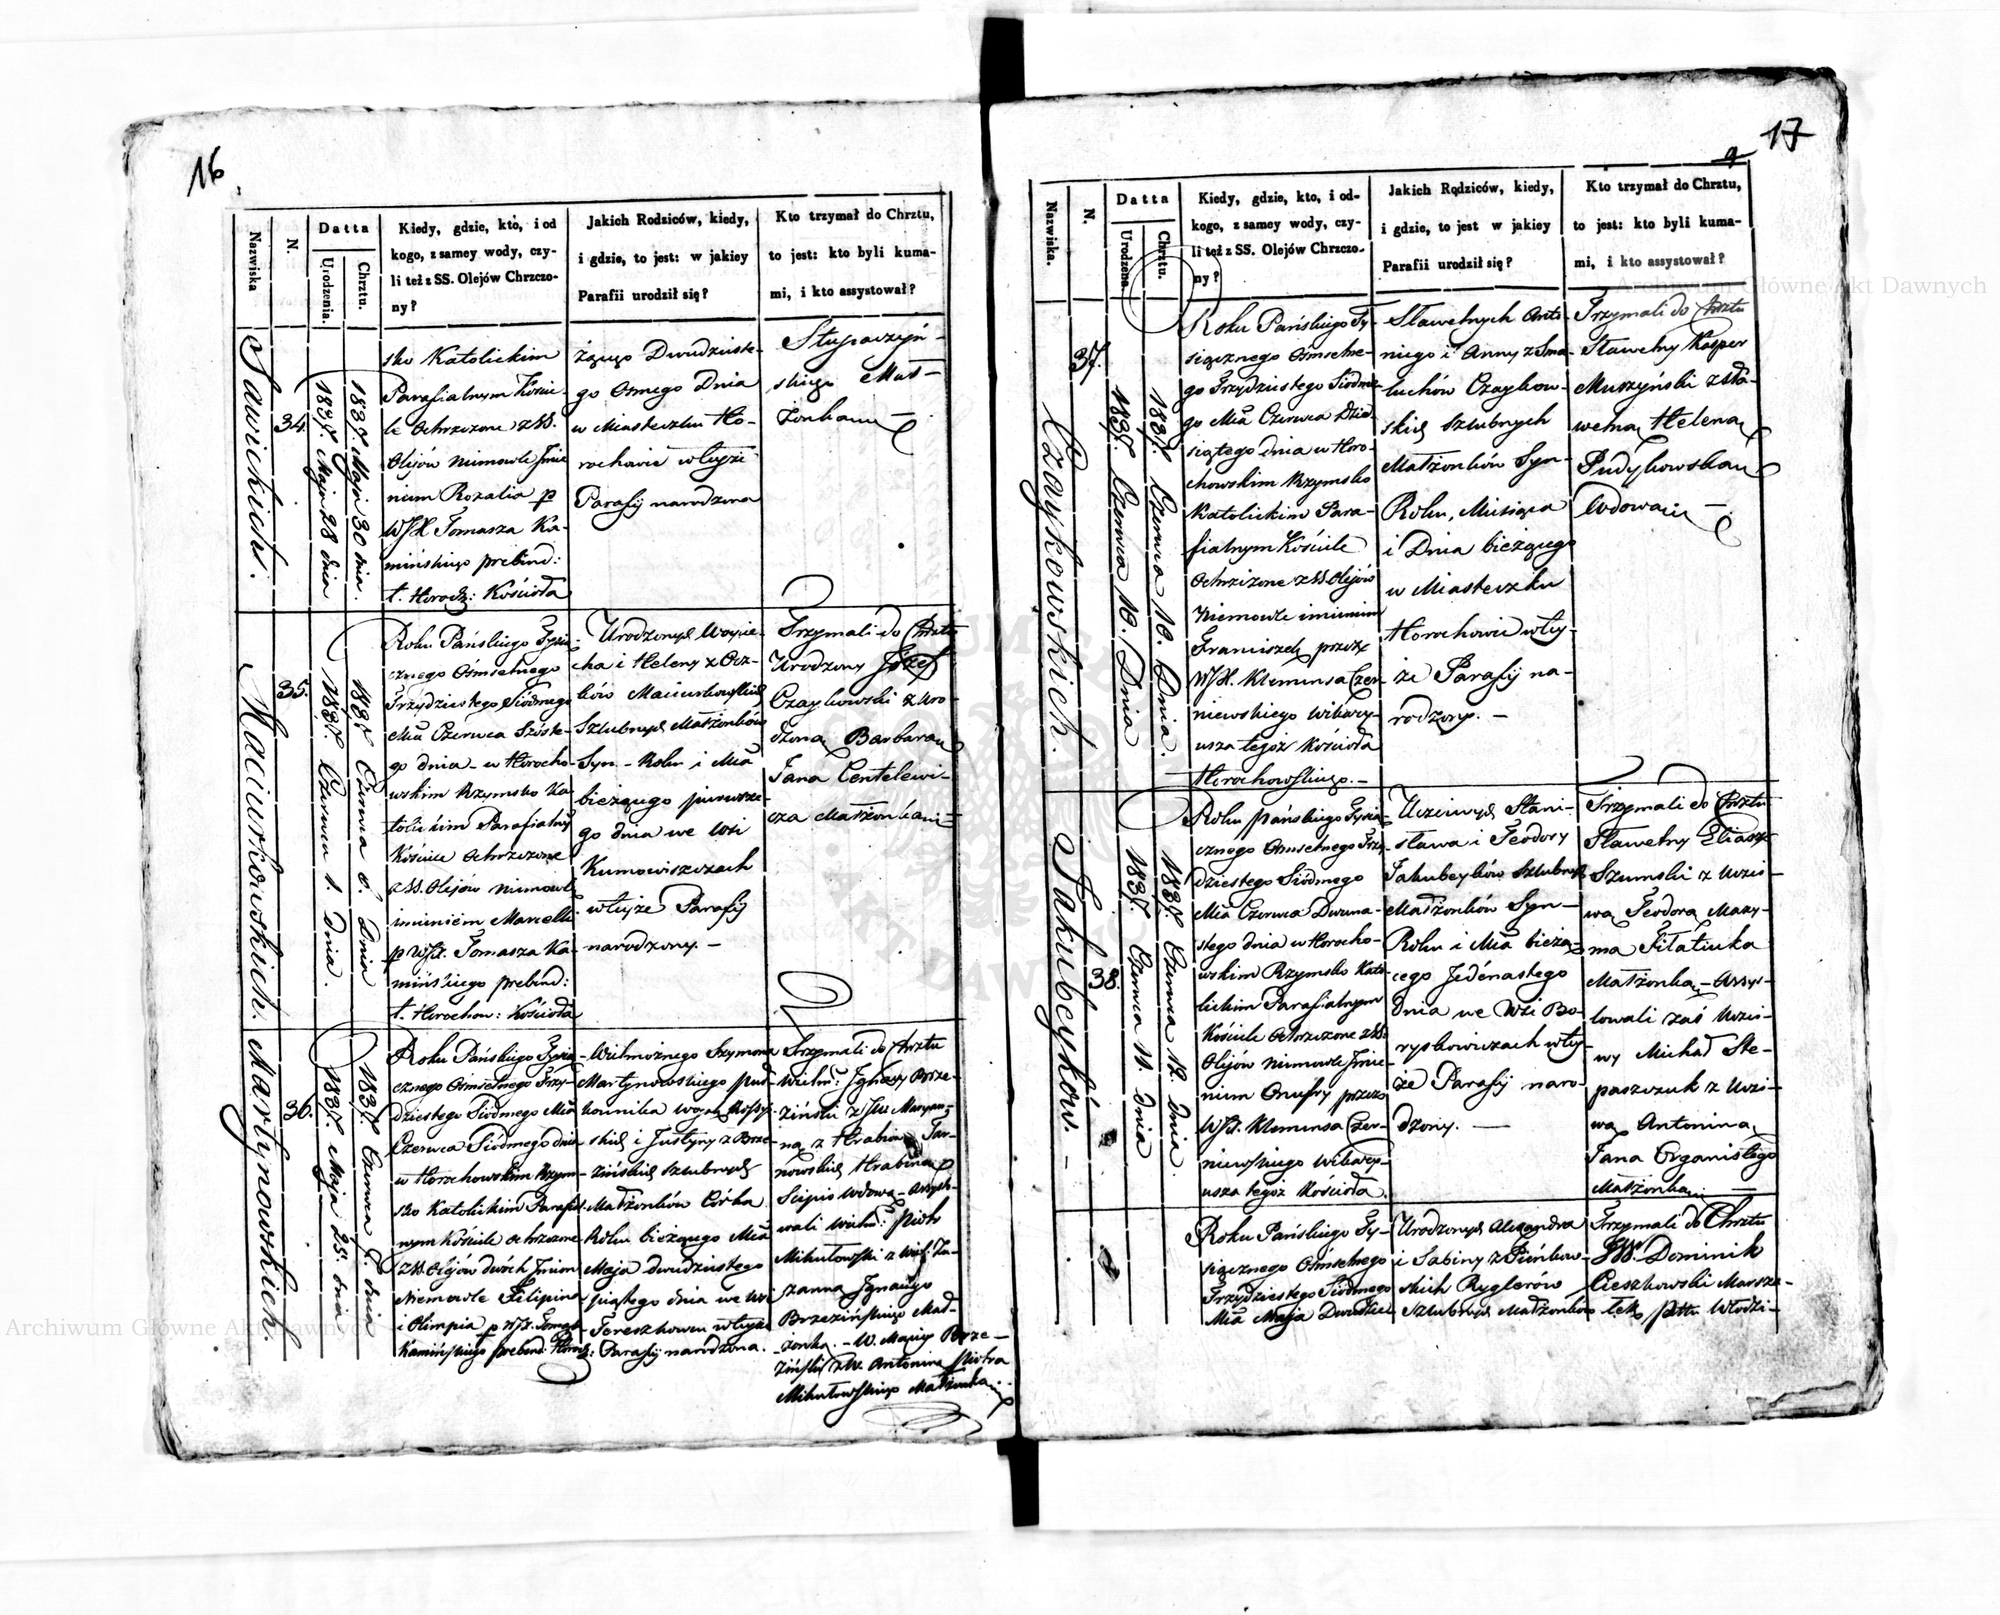 16
Nazwiska
N.
Datta
Urodzenia.
Chrztu.
Kiedy, gdzie, kto, i od
kogo, z samey wody, czy-
li też z SS. Olejów Chrzczo-
ny?
Jakich Rodziców, kiedy,
i gdzie, to jest: w jakiey
Parafii urodził się?
Kto trzymał do Chrztu,
to jest: kto byli kuma-
mi, i kto assystował?
Sawickich.
34.
1837. Maja 28 dnia
1837. Maja 30 dnia.
sko Katolickim
Parafialnym Kście-
le Ochrzczone z SS.
Olejów niemowle Imie
niem Rozalia p
WJX Tomasza Ka-
mińskiego prebend:
t. Horoch: Kościoła
żącego Dwudzieste-
go Osmego Dnia
w Miasteczku Ho-
rochowie w teyże
Parafij narodzona
Słupaczyń-
skiego Mał-
żonkami
Maciurkowskich.
35.
1837. Czerwca 1. Dnia.
1837 Czerwca 6. Dnia
Roku Pańskiego Tysią-
cznego Ośmsetnego
Trzydziestego Siódmego
Mca Czerwca Szóste-
go dnia - w Horocho-
wskim Rzymsko Ka
tolickim Parafialnym
Kościele Ochrzczone
z SS. Olejów niemowle
imieniem Marcelli
p WJX. Tomasza Ka-
mińskiego prebend:
t. Horochow: Kościoła
Urodzonych Woycie-
cha i Heleny z
Maciurkowskich
Szlubnych Małżonków
Syn - Roku i Mca
bieżącego pierwsze-
go dnia we Wsi
Kumowiszczach
w teyże Parafij
narodzony. -
Trzymali do Chrztu
Urodzony Józef
Czaykowski z Uro-
dzoną Barbarą
Jana Centelewi-
cza Małżonkami
Martynowskich.
36.
1837. Maja 25. dnia
1837. Czerwca 7. dnia
Roku Pańskiego Tysią-
cznego Ośmsetnego Trzy-
dziestego Siódmego Mca
Czerwca Siódmego dnia
w Horochowskim Rzym-
sko Katolickim Parafial-
nym Kościele ochrzczone
z SS. Olejów dwóch Imion
Niemowle Filipina
i Olimpia p WJX. Tomasza
Kamińskiego prebend. Horoch:
Wielmożnego Szymona
Martynowskiego puł
kownika woysk Rossy-
skich i Justyny z Brze-
zińskich szlubnych
Małżonków Córka
Roku bieżącego Mca
Maja dwudziestego
piątego dnia we wsi
Tereszkowcu w teyże
Parafij narodzona.
Trzymali do Chrztu
Wielm: Ignacy Brze-
ziński z JW Maryan-
ną z Hrabiow Tar-
nowskich Hrabiną
Scipio wdową - Assysto-
wali Wielm: Piotr
Mikułowski z Wiel: Zu-
zanną Ignacego
Brzezińskiego Mał-
żonką. - W. Maciey Brze-
ziński z W. Antoniną Piotra
Mikułowskiego Małżonką
17
9
Nazwiska.
N.
Datta
Urodzenia.
Chrztu.
Kiedy, gdzie, kto, i od-
kogo, z samey wody, czy-
li też z SS. Olejów Chrzczo-
ny?
Jakich Rodziców, kiedy,
i gdzie, to jest w jakiey
Parafii urodził się?
Kto trzymał do Chrztu,
to jest: kto byli kuma-
mi, i kto assystował?
Czaykowskich.
37.
1837. Czerwca 10. Dnia
1837. Czerwca 10. Dnia.
Roku Pańskiego Ty-
siącznego Ośmsetne-
go Trzydziestego Siódme-
go Mca Czerwca Dzie-
siątego dnia w Horo-
chowskim Rzymsko
Katolickim Para-
fialnym Kościele
Ochrzczone z SS Olejów
Niemowle imieniem
Franciszek przez
WJX. Klemensa Czer-
niewskiego Wikary-
usza tegoż Kościoła
Horochowskiego. -
Sławetnych Anto-
niego i Anny z Sma-
luchów Czaykow-
skich szlubnych
Małżonków Syn-
Roku, Miesiąca
i Dnia bieżącego
w Miasteczku
Horochowie w tey-
że Parafij na-
rodzony. -
Trzymali do Chrztu
Sławetny Kasper
Muszyński z Sła-
wetną Heleną
Pudykowską
Wdową
Jakubcyków. -
38.
1837. Czerwca 11. dnia
1837. Czerwca 12. dnia.
Roku pańskiego Tysią-
cznego Ośmsetnego Trzy-
dziestego Siódmego
Mca Czerwca Dwuna-
stego dnia w Horocho-
wskim Rzymsko Kato-
lickim Parafialnym
Kościele Ochrzczone z SS.
Olejów Niemowle Imie-
niem Onufry przez
WJX. Klemensa Czer-
niewskiego Wikary-
usza tegoż Kościoła.
Uczciwych Stani-
sława i Teodory
Jakubcyków Szlubnych
Małżonków Syn -
Roku i Mca bieżą-
cego Jedénastego
Dnia we Wsi Bo-
ryskowiczach w tey-
że Parafij naro-
dzony. -
Trzymali do Chrztu
Sławetny Eliasz
Szumski z Uczci-
wą Teodorą Maxy-
ma Fiłatiuka
Małżonką - Assys-
towali zaś Uczci-
wy Michał Ste-
paszczuk z Uczci-
wą Antoniną
Jana Organistego
Małżonkami -
Roku Pańskiego Ty-
siącznego Ośmsetnego
Trzydziestego Siódmego
Mca Maja Dwudzies
Urodzonych Alexandra
i Sabiny z Pieńkow-
skich Ryglerów
Szlubnych Małżonków
Trzymali do Chrztu
JW. Dominik
Cieszkowski Marsza-
łek pttu Włodzi-
Archiwum Główne Akt Dawnych
Archiwum Główne Akt Dawnych